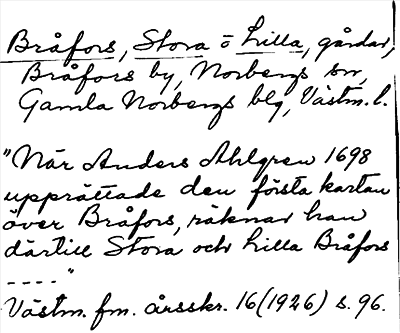 Bråfors, Stora o Lilla, gårdar,
Bråfors by, Norbergs sn,
Gamla Norbergs blg, Västm. l.
"När Anders Ahlgren 1698
upprättade den första kartan
över Bråfors, räknar han
därtill Stora och Lilla Bråfors
----"
Västm. fm. årsskr. 16 (1926) s. 96.